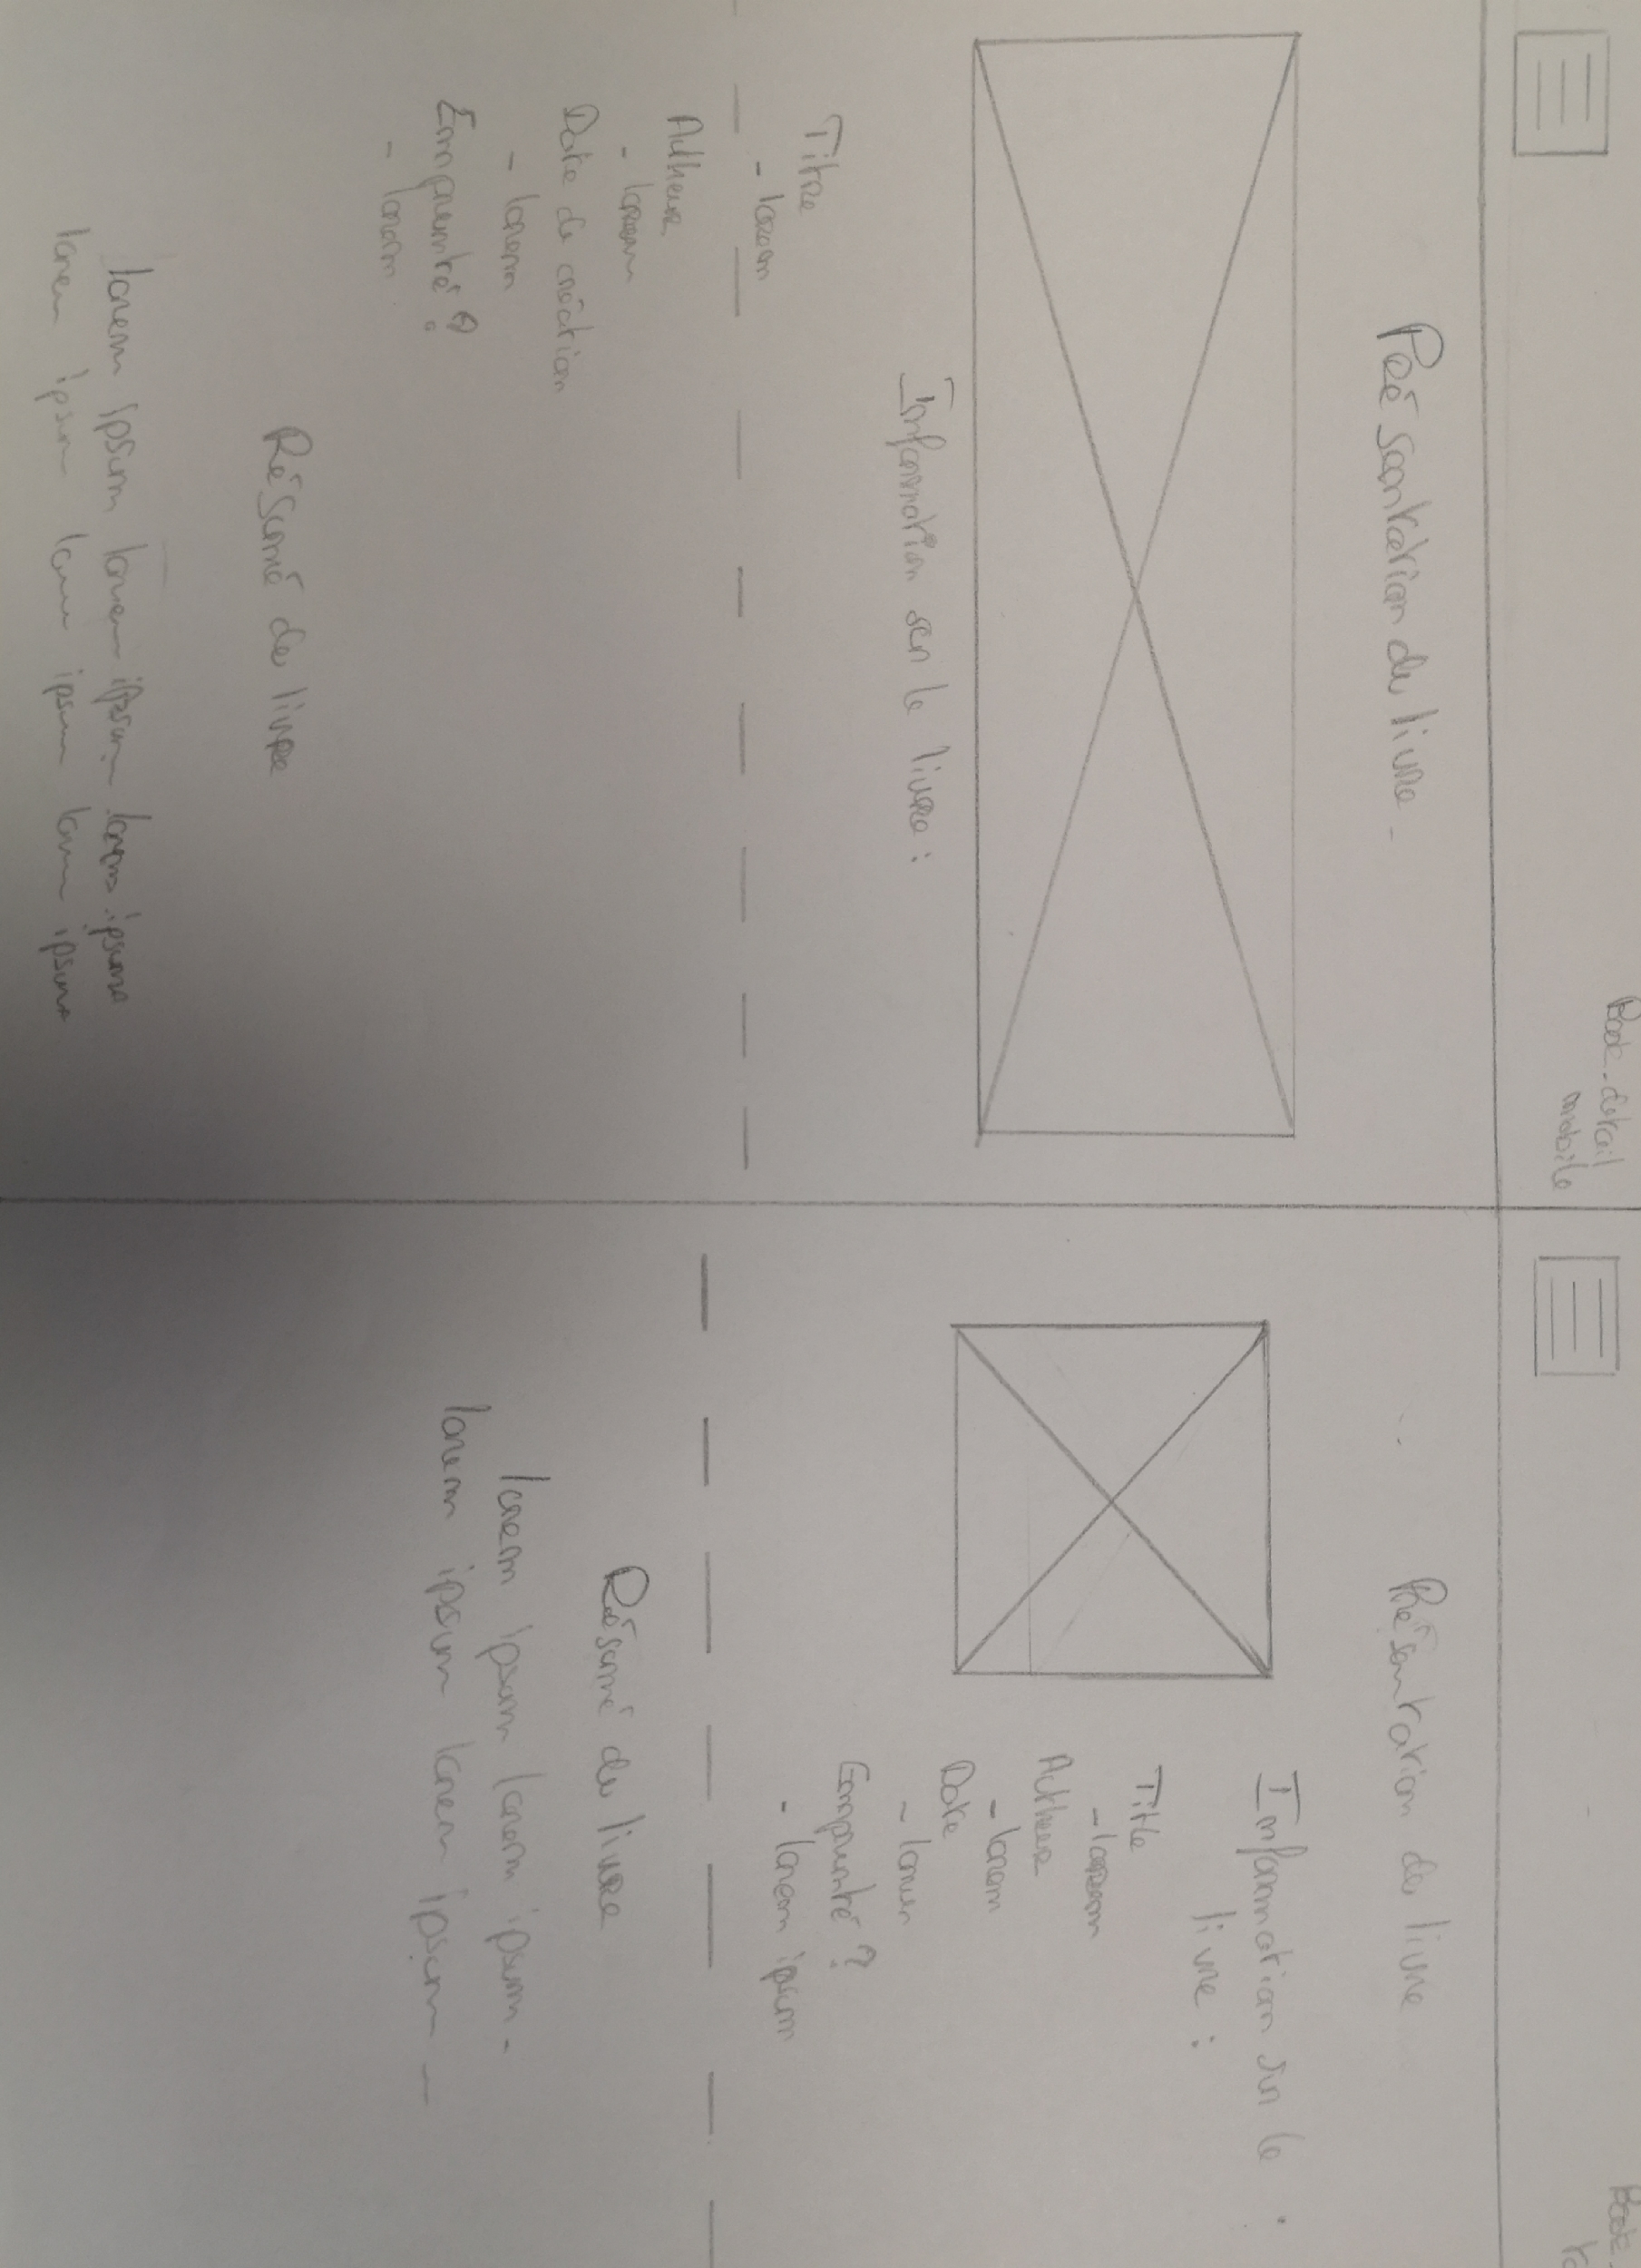 Book-détail
mobile
Présentation du livre
Information sur le livre :
Titre
- lorem
Autheur
- lorem
Date de création
- lorem
Emprunté ?
- lorem
Résumé du livre
lorem ipsum lorem ipsum lorem ipsum
lorem ipsum lorem ipsum lorem ipsum
Book-
Présentation du livre
Information sur le
livre :
Title
- lorem
Autheur
- lorem
Date
- lorem
Emprunté ?
- lorem ipsum
Résumé du livre
lorem ipsum lorem ipsum -
lorem ipsum lorem ipsum -